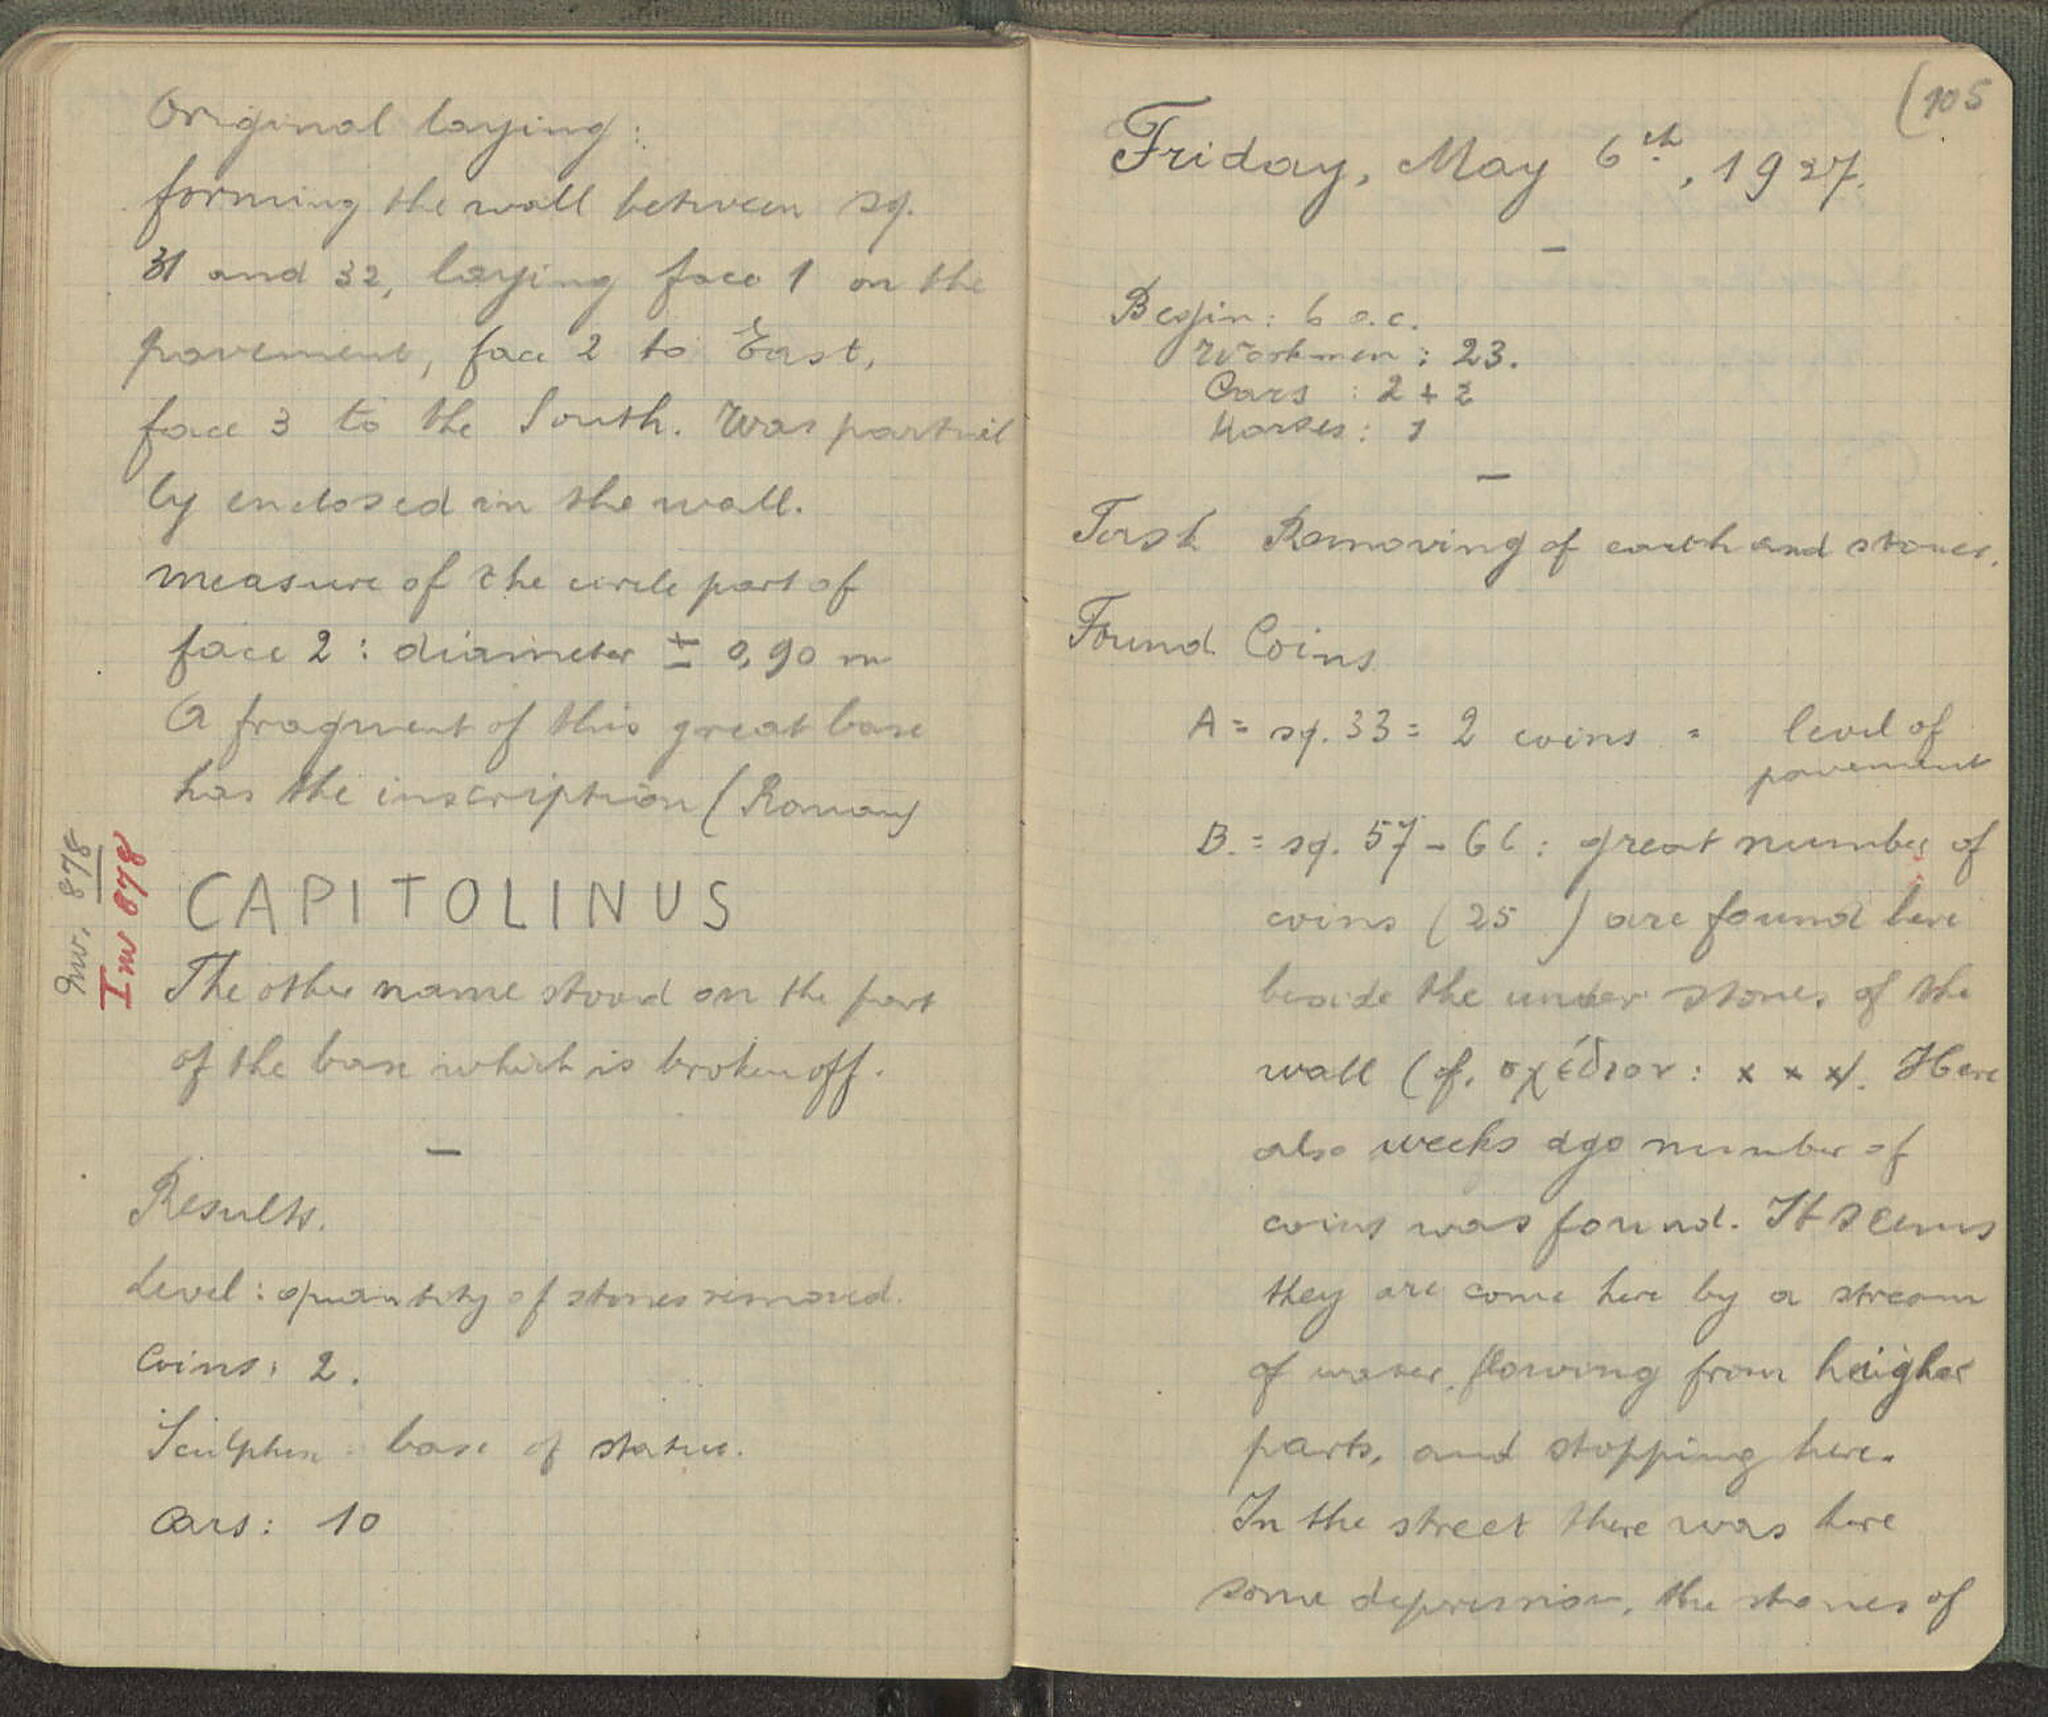 Original laying:
forming the wall between sq.
31 and 32, laying face 1 on the
pavement, face 2 to East,
face 3 to the South. Was partial
ly enclosed in the wall.
measure of the circle part of
face 2 : diameter ± 0,90 m
A fragment of this great base
has the inscription (Roman)
CAPITOLINUS
Inv. 878
Inv 878
The other name stood on the part
of the base which is broken off.
—
Results.
Level : quantity of stones removed.
Coins: 2.
Sculpture : base of statue.
Cars: 10
(105
Friday, May 6th, 1927.
—
Begin: 6 o.c.
Workmen : 23.
Cars : 2 + 2
Horses : 1
—
Task Removing of earth and stones.
Found Coins
A = sq. 33 = 2 coins = level of
pavement
B. = sq. 57 - 66 : great number of
coins (25 ) are found here
beside the under stones of the
wall (cf. σχέδιον : x x x). Here
also weeks ago number of
coins was found. It seems
they are come here by a stream
of water, flowing from heigher
parts, and stopping here.
In the street there was here
some depression, the stones of